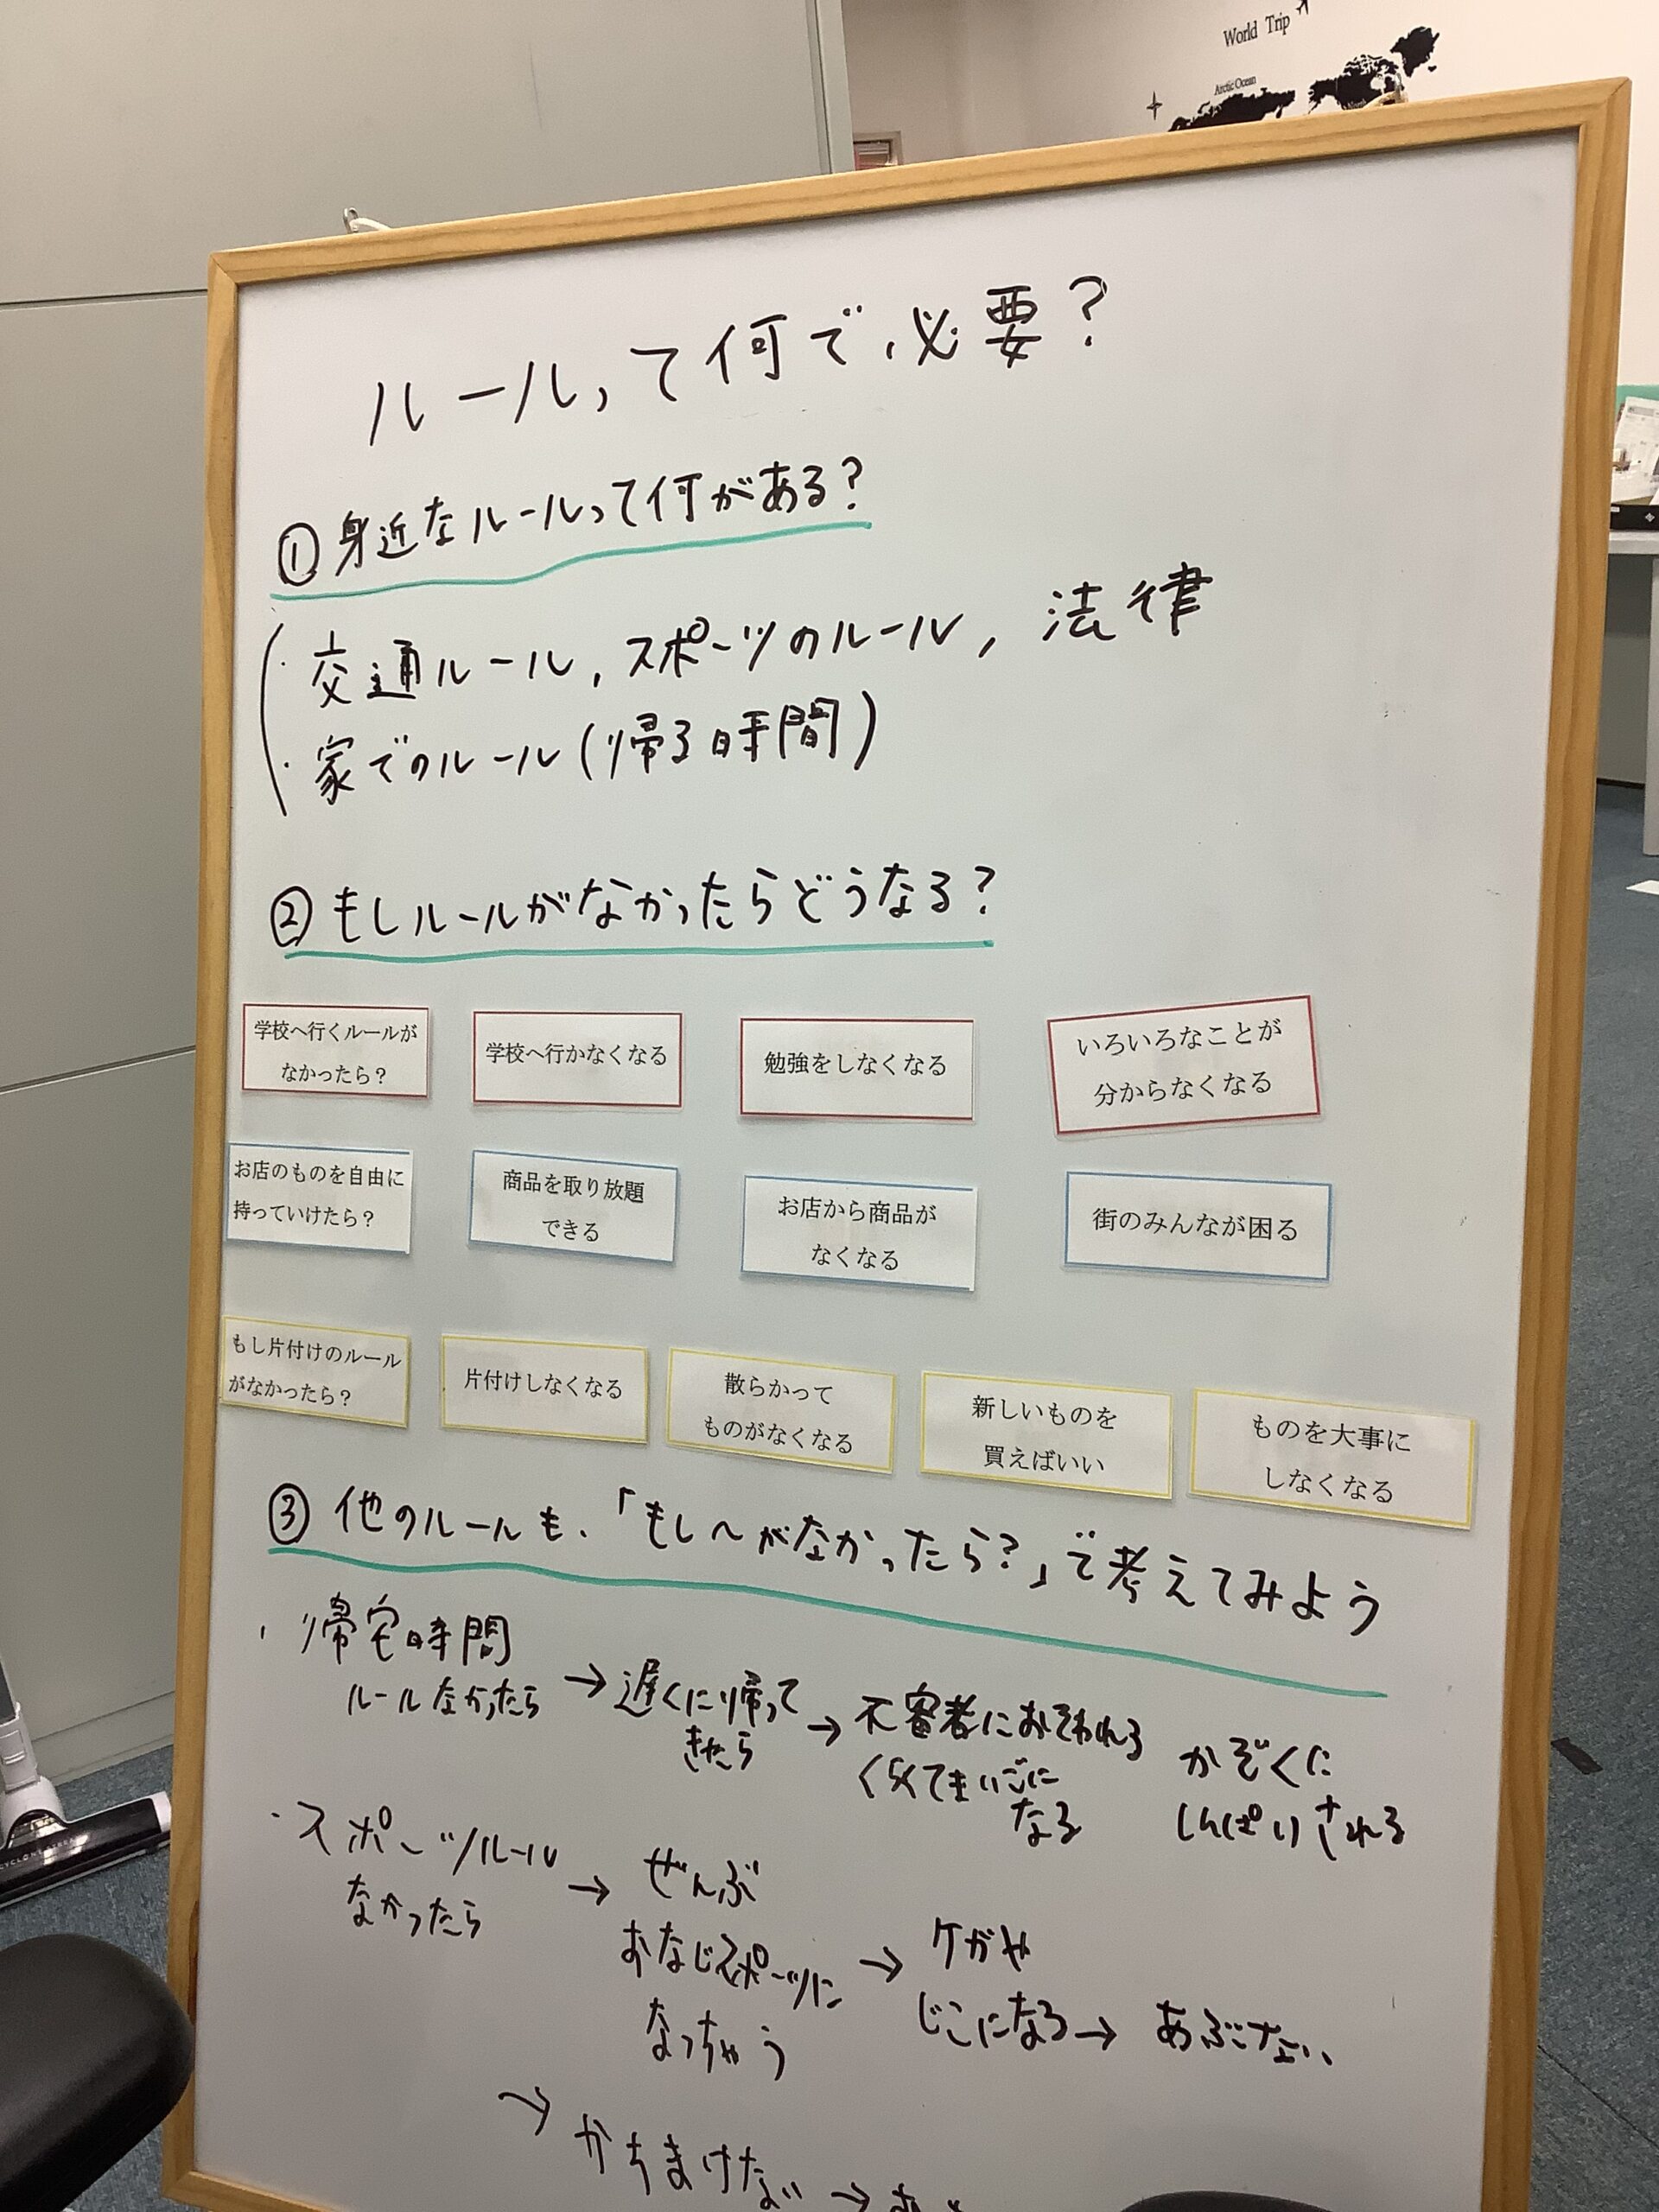 World Trip
Arctic Ocean
ルールって何で必要?
①身近なルールって何がある?
・交通ルール, スポーツのルール, 法律
・家でのルール(帰る時間)
②もしルールがなかったらどうなる?
学校へ行くルールが
なかったら?
学校へ行かなくなる
勉強をしなくなる
いろいろなことが
分からなくなる
お店のものを自由に
持っていけたら?
商品を取り放題
できる
お店から商品が
なくなる
街のみんなが困る
もし片付けのルール
がなかったら?
片付けしなくなる
散らかって
ものがなくなる
新しいものを
買えばいい
ものを大事に
しなくなる
③他のルールも、「もし〜がなかったら?」で考えてみよう
・帰宅時間
ルールなかったら
→遅くに帰って
きたら
→不審者におそわれる
くらくてまいごに
なる
かぞくに
しんぱいされる
・スポーツルール
なかったら
→ぜんぶ
おなじスポーツに
なっちゃう
→ケガや
じこになる→あぶない
→かちまけない→